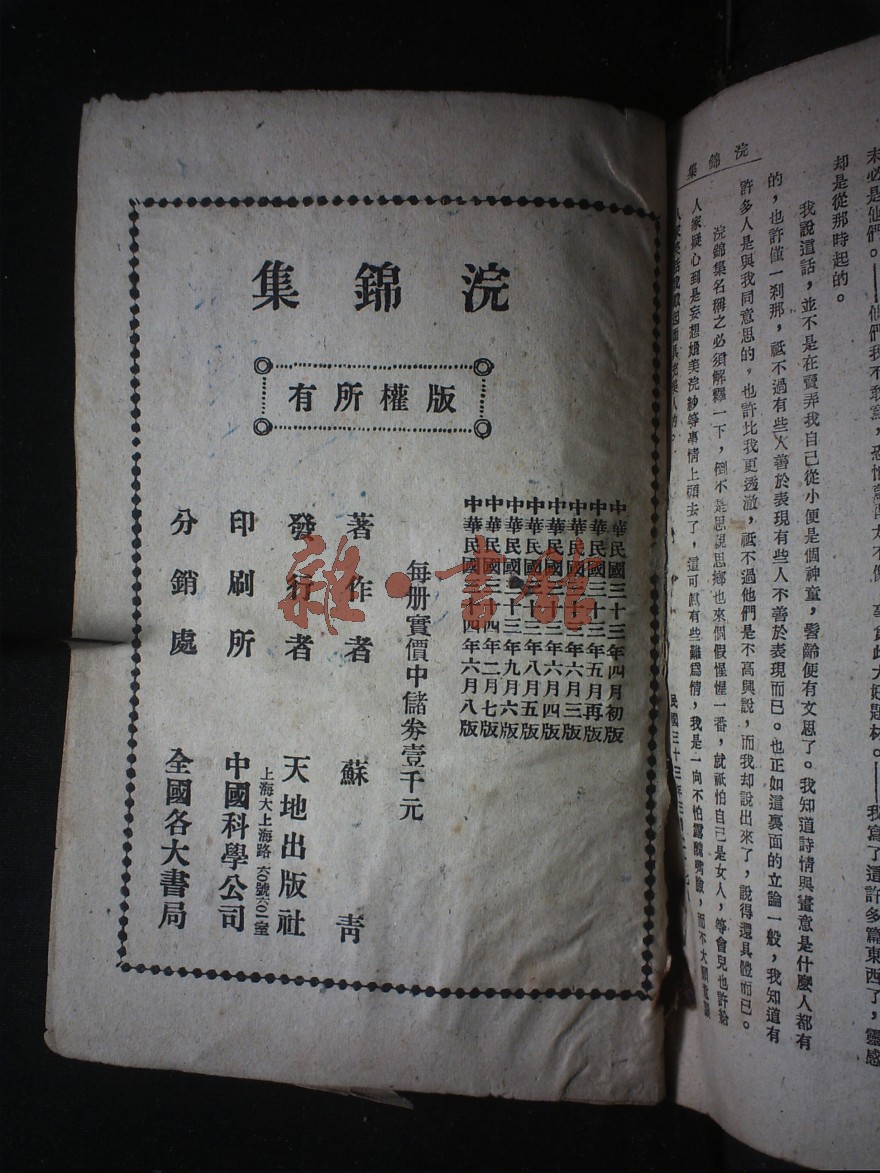 浣錦集
版權所有
中華民國三十三年四月初版
中華民國三十三年五月再版
中華民國三十三年六月三版
中華民國三十三年六月四版
中華民國三十三年八月五版
中華民國三十三年九月六版
中華民國三十四年二月七版
中華民國三十四年六月八版
每册實價中儲券壹千元
著作者 蘇青
發行者 天地出版社
上海大上海路六〇號六〇一室
印刷所 中國科學公司
分銷處 全國各大書局
雜·書館
浣錦集
未必是他們。——他們我不敢寫，恐怕
大好題材。——我寫了這許多篇東西了，靈感
却是從那時起的。
我說這話，並不是在賣弄我自己從小便是個神童，髫齡便有文思了。我知道詩情與畫意是什麼人都有
的，也許僅一刹那，祗不過有些人善於表現有些人不善於表現而已。也正如這裏面的立論一般，我知道有
許多人是與我同意思的，也許比我更透澈，祗不過他們是不高興說，而我却說出來了，說得還具體而已。
浣錦集名稱之必須解釋一下，倒不是思想思鄉也來個假惺惺一番，就祗怕自己是女人，等會兒也許給
人家疑心到是妄想媲美浣紗等事情上頭去了，這可眞有些難爲情，我是一向不怕露醜
民國三十三年